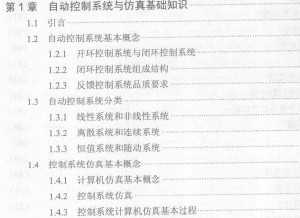 第1章 自动控制系统与仿真基础知识
1.1 引言
1.2 自动控制系统基本概念
1.2.1 开环控制系统与闭环控制系统
1.2.2 闭环控制系统组成结构
1.2.3 反馈控制系统品质要求
1.3 自动控制系统分类
1.3.1 线性系统和非线性系统
1.3.2 离散系统和连续系统
1.3.3 恒值系统和随动系统
1.4 控制系统仿真基本概念
1.4.1 计算机仿真基本概念
1.4.2 控制系统仿真
1.4.3 控制系统计算机仿真基本过程